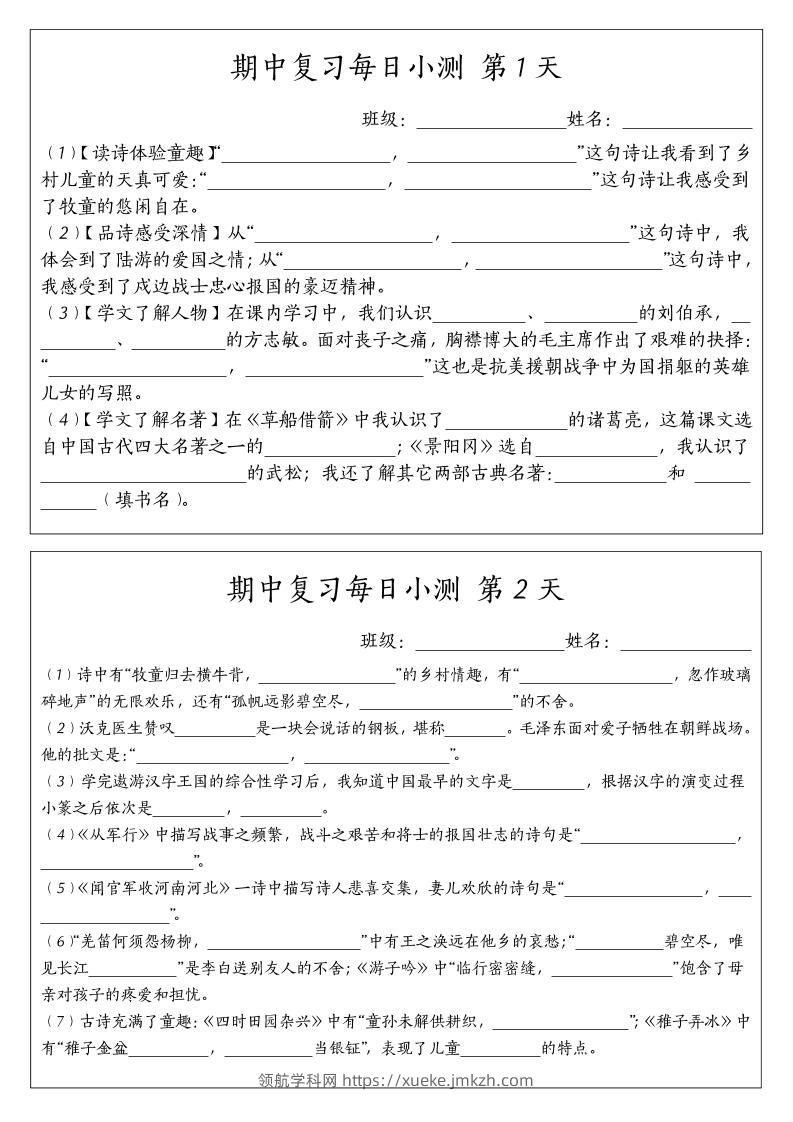 期中复习每日小测 第1天
班级：________________姓名：______________
（1）【读诗体验童趣】“__________________，__________________”这句诗让我看到了乡
村儿童的天真可爱；“___________________，____________________”这句诗让我感受到
了牧童的悠闲自在。
（2）【品诗感受深情】从“___________________，___________________”这句诗中，我
体会到了陆游的爱国之情；从“___________________，____________________”这句诗中，
我感受到了戍边战士忠心报国的豪迈精神。
（3）【学文了解人物】在课内学习中，我们认识__________、__________的刘伯承，__
________、__________的方志敏。面对丧子之痛，胸襟博大的毛主席作出了艰难的抉择：
“___________________，___________________”这也是抗美援朝战争中为国捐躯的英雄
儿女的写照。
（4）【学文了解名著】在《草船借箭》中我认识了_____________的诸葛亮，这篇课文选
自中国古代四大名著之一的______________；《景阳冈》选自_____________，我认识了
______________________的武松；我还了解其它两部古典名著：____________和 ______
______（填书名）。
期中复习每日小测 第2天
班级：________________姓名：______________
（1）诗中有“牧童归去横牛背，_________________”的乡村情趣，有“___________________，忽作玻璃
碎地声”的无限欢乐，还有“孤帆远影碧空尽，___________________”的不舍。
（2）沃克医生赞叹__________是一块会说话的钢板，堪称________。毛泽东面对爱子牺牲在朝鲜战场。
他的批文是：“___________________，__________________”。
（3）学完遨游汉字王国的综合性学习后，我知道中国最早的文字是_________，根据汉字的演变过程
小篆之后依次是_________，__________。
（4）《从军行》中描写战事之频繁，战斗之艰苦和将士的报国壮志的诗句是“___________________，
___________________”。
（5）《闻官军收河南河北》一诗中描写诗人悲喜交集，妻儿欢欣的诗句是“_________________，____
________________”。
（6）“羌笛何须怨杨柳，___________________”中有王之涣远在他乡的哀愁；“___________碧空尽，唯
见长江___________”是李白送别友人的不舍；《游子吟》中“临行密密缝，_______________”饱含了母
亲对孩子的疼爱和担忧。
（7）古诗充满了童趣：《四时田园杂兴》中有“童孙未解供耕织，_________________”；《稚子弄冰》中
有“稚子金盆__________，___________当银钲”，表现了儿童__________的特点。
领航学科网 https://xueke.jmkzh.com